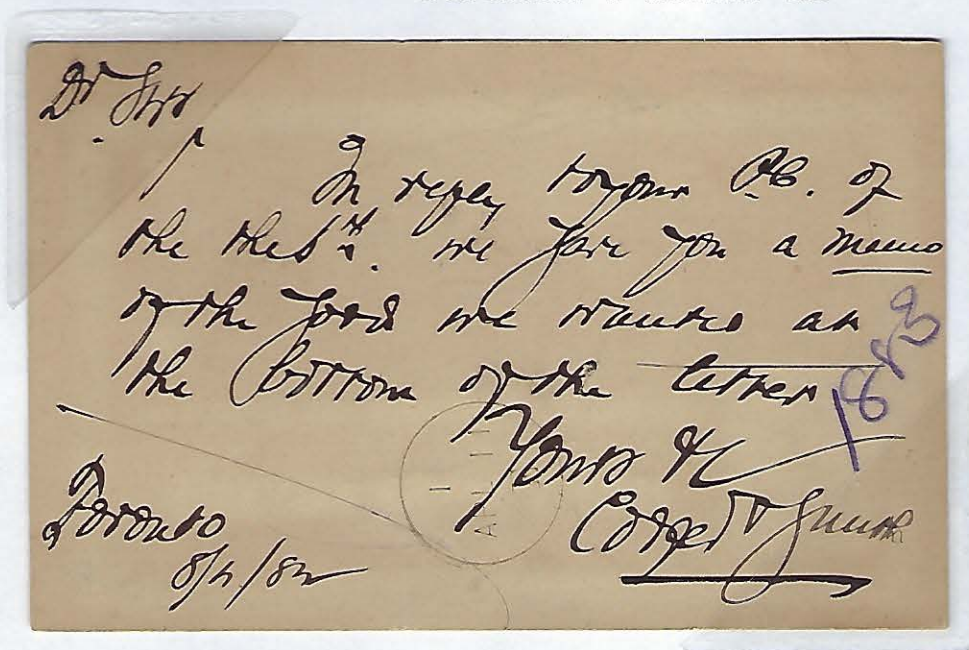 Dr Sirs
In reply to your P.C. of
the the 5th. we gave you a memo
of the goods we wanted at
the bottom of the letter
Yours &c
Smith
Toronto
8/4/82
1883